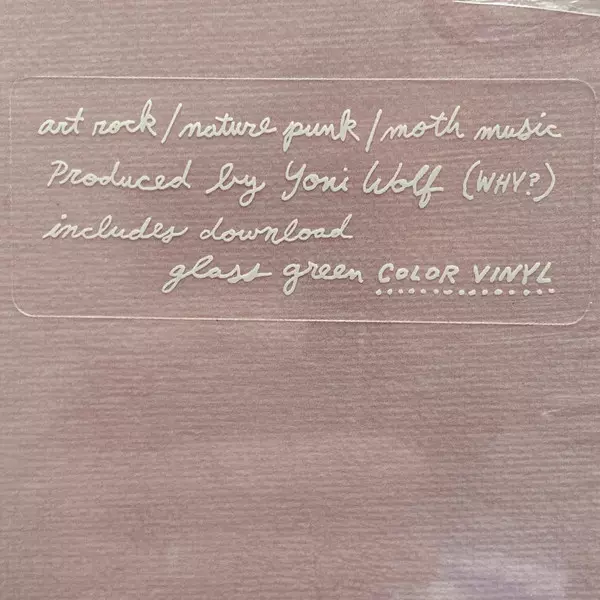 art rock/nature punk/moth music
Produced by Yoni Wolf (WHY?)
includes download
glass green COLOR VINYL